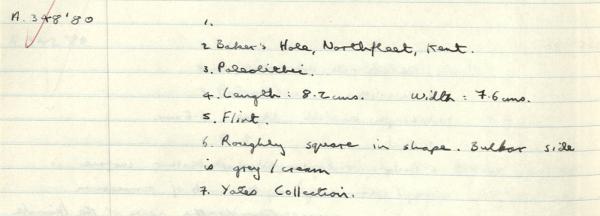 A.348'80
1.
2 Baker's Hole, Northfleet, Kent.
3. Paleolithic.
4. Length: 8.2cms. Width: 7.6cms.
5. Flint.
6. Roughly square in shape. Bulbar side
is grey/cream
7. Yates Collection.